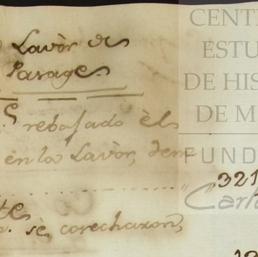 Lavòr de
Parages
rebajado èls
en la Lavòr, dem
321
se, corecharon,
CENT
ESTU
DE HIS
DE M
FUND
Carl